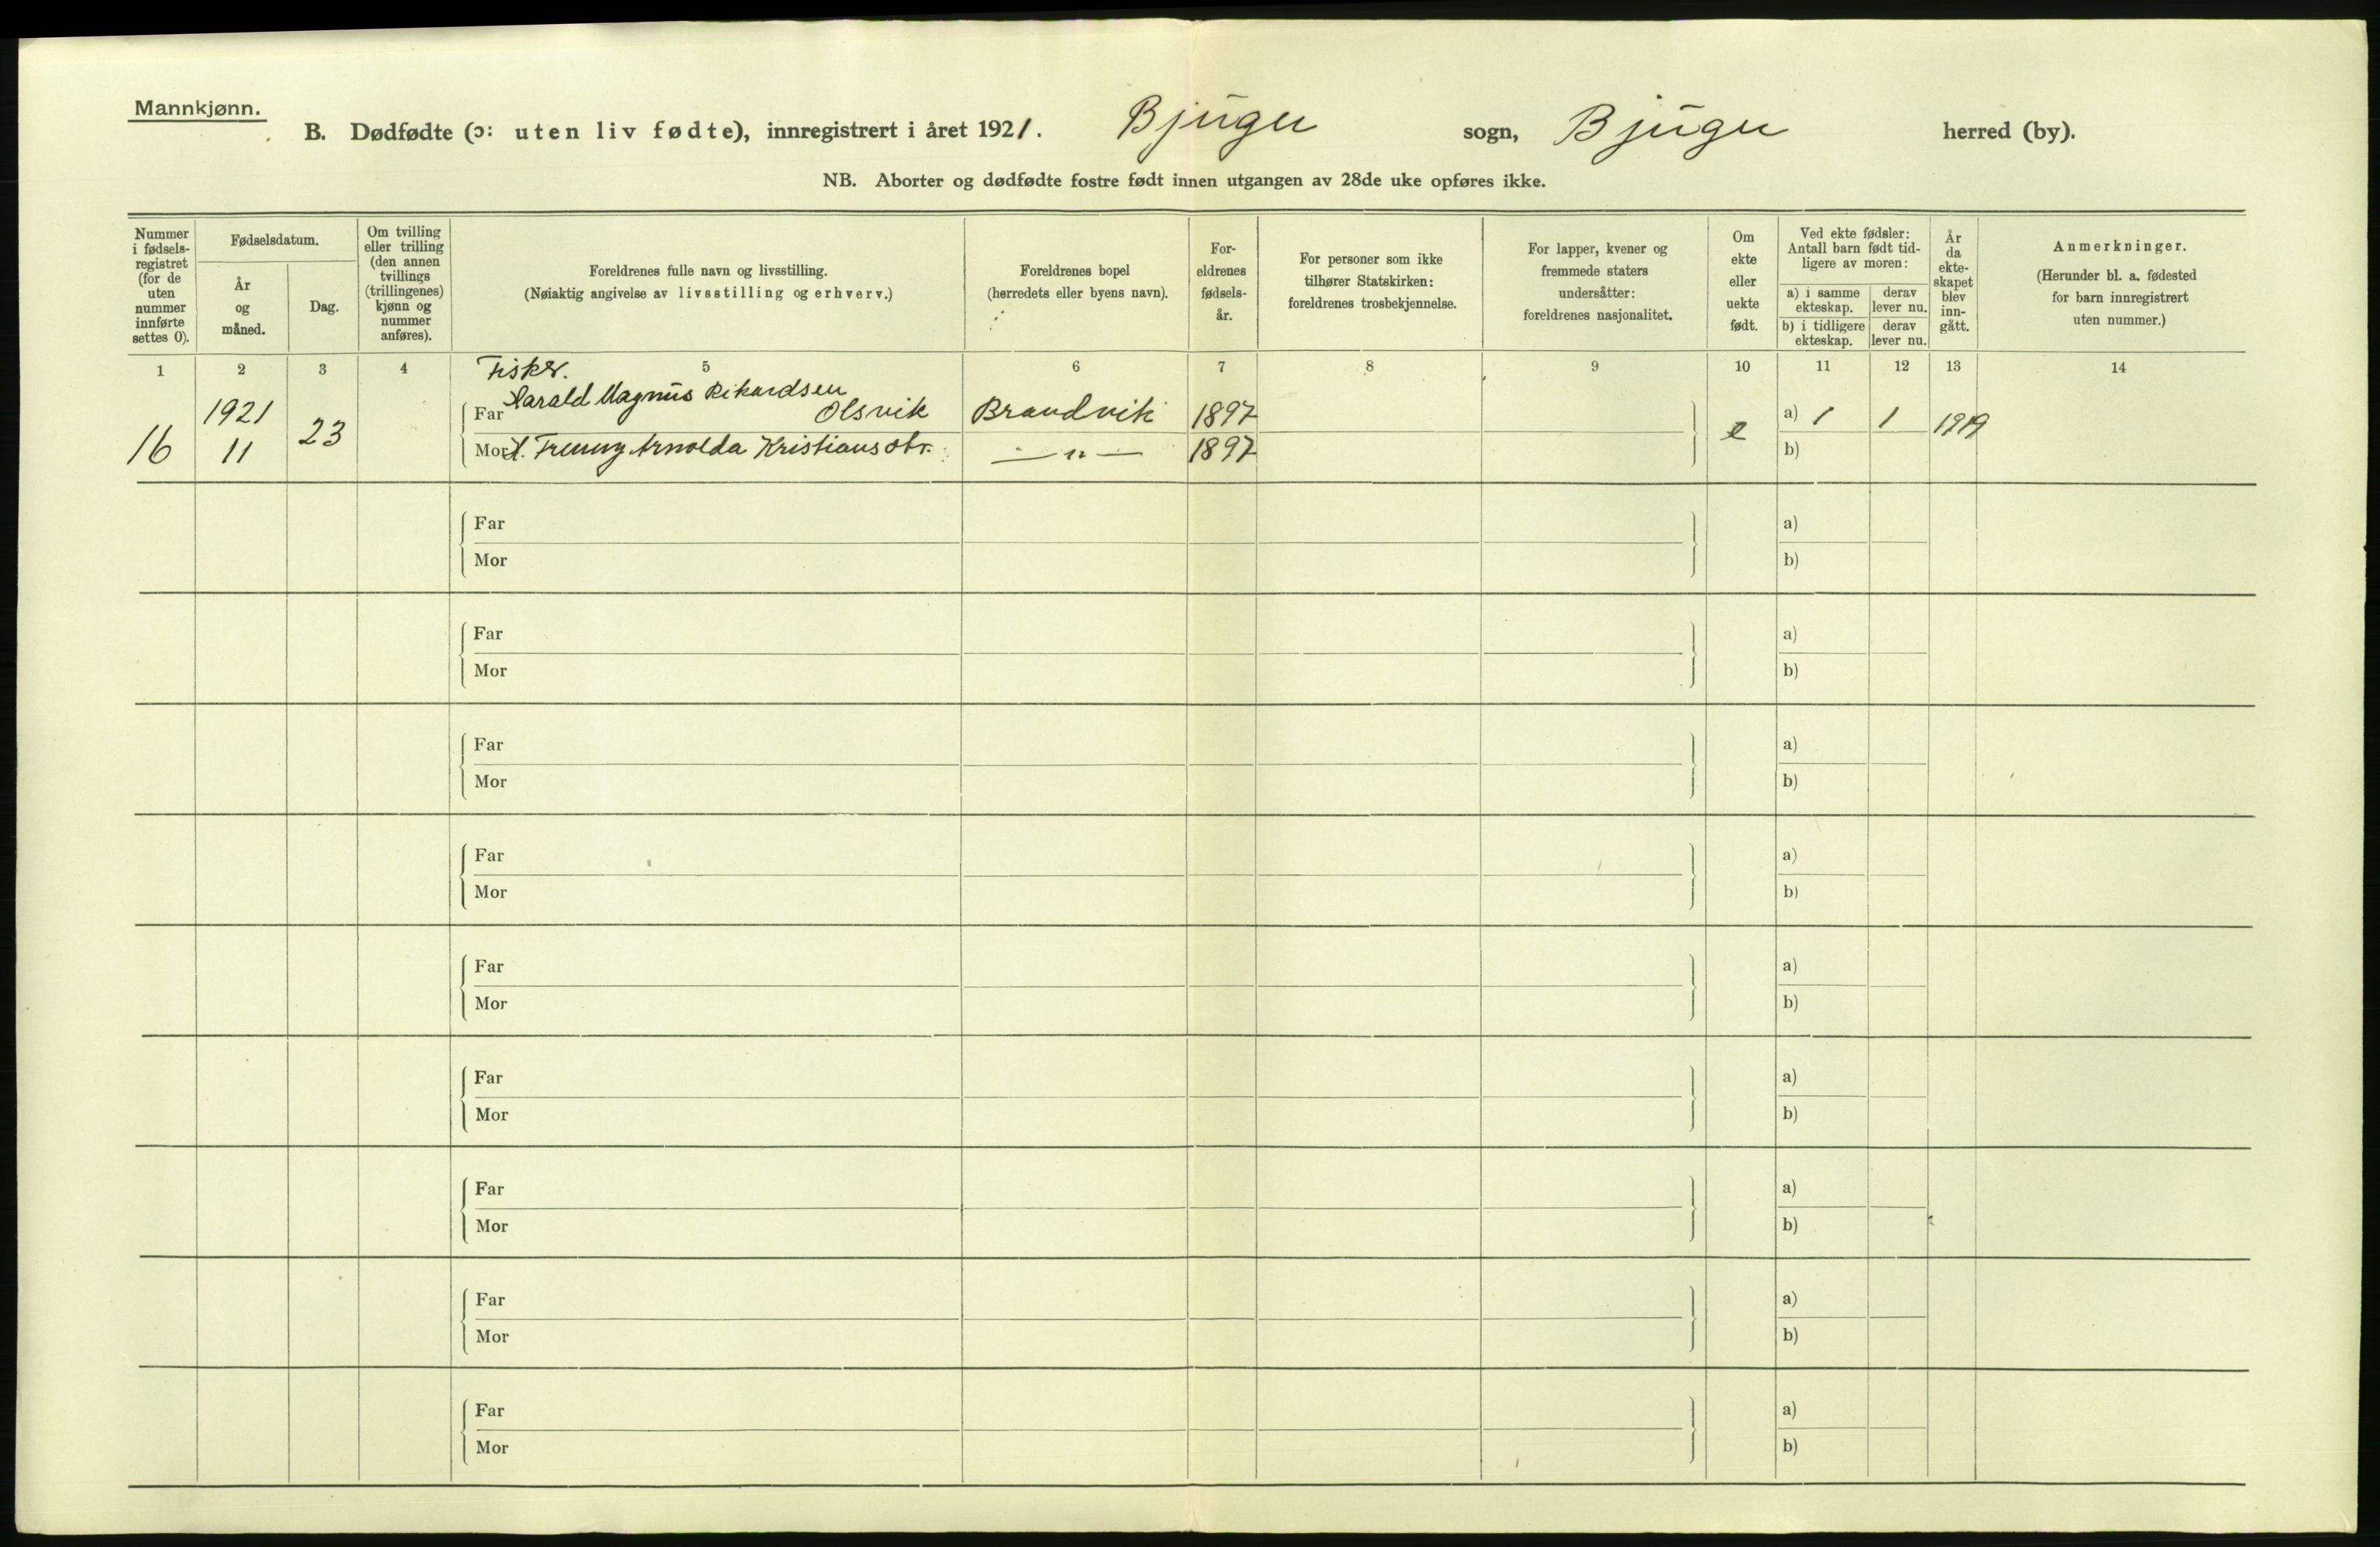 Mannkjønn.
B. Dødfødte (ɔ: uten liv fødte), innregistrert i året 1921. Bjugn sogn, Bjugn herred (by).
NB. Aborter og dødfødte fostre født innen utgangen av 28de uke opføres ikke.
Nummer i fødsels-registret (for de uten nummer innførte settes 0).
Fødselsdatum.
År og måned.
Dag.
Om tvilling eller trilling (den annen tvillings (trillingenes) kjønn og nummer anføres).
Foreldrenes fulle navn og livsstilling.
(Nøiaktig angivelse av livsstilling og erhverv.)
Foreldrenes bopel
(herredets eller byens navn).
For-eldrenes fødsels-år.
For personer som ikke tilhører Statskirken: foreldrenes trosbekjennelse.
For lapper, kvener og fremmede staters undersåtter: foreldrenes nasjonalitet.
Om ekte eller uekte født.
Ved ekte fødsler: Antall barn født tid-ligere av moren:
a) i samme ekteskap.
derav lever nu.
b) i tidligere ekteskap.
derav lever nu.
År da ekte-skapet blev inn-gått.
Anmerkninger.
(Herunder bl. a. fødested for barn innregistrert uten nummer.)
1 2 3 4 5 6 7 8 9 10 11 12 13 14
Fisker.
Harald Magnus Rikardsen
16 1921 11 23 Far Olsvik Brandvik 1897 e a) 1 1 1919
Mor H. Arnolda Kristiansdtr. — " — 1897 b)
Far a)
Mor b)
Far a)
Mor b)
Far a)
Mor b)
Far a)
Mor b)
Far a)
Mor b)
Far a)
Mor b)
Far a)
Mor b)
Far a)
Mor b)
Far a)
Mor b)